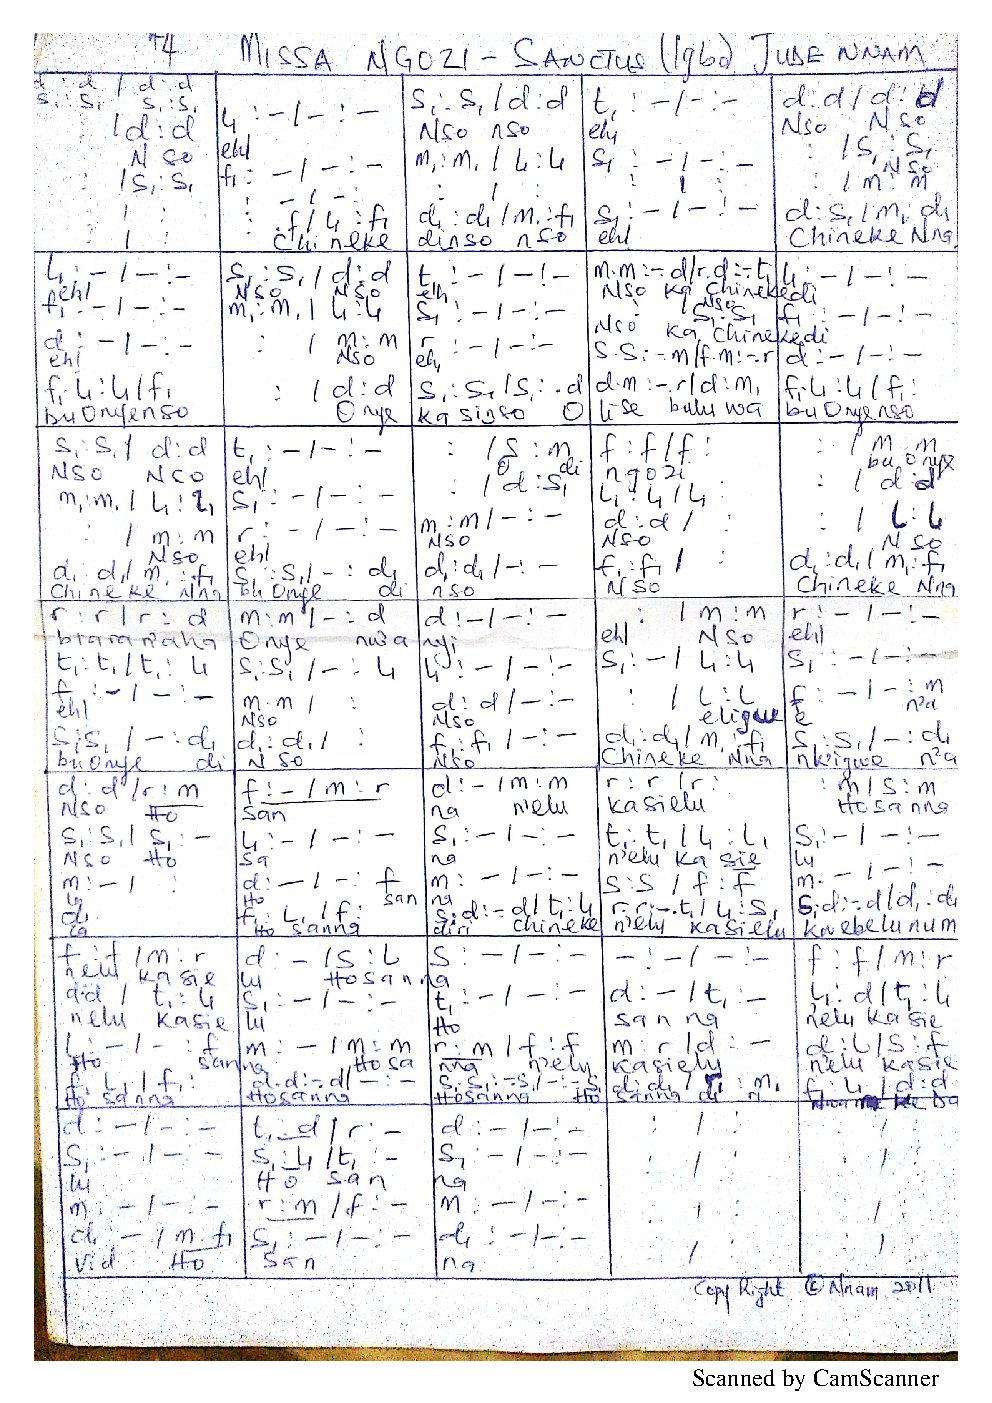 74 MISSA NGOZI - SANCTUS (Igbo) JUDE NNAM
d : d / d : d
s₁ : s₁ s₁ : s₁
: / d : d
N so
: / s₁ : s₁
: / :
: / :
l₁ : – / – : –
ehl
f₁ : – / – : –
: – / – : –
: f₁ / l₁ : f₁
Chineke
s₁ : s₁ / d : d
Nso nso
m₁ : m₁ / l₁ : l₁
: / :
d₁ : d₁ / m₁ : f₁
dinso nso
t₁ : – / – : –
ehl
s₁ : – / – : –
: / :
s₁ : – / – : –
ehl
d : d / d : d
Nso Nso
: / s₁ : s₁
Nso
: / m : m
d : s₁ / m₁ d₁
Chineke Nna
l₁ : – / – : –
ehl
f₁ : – / – : –
d : – / – : –
ehl
f₁ : l₁ : l₁ / f₁
bu Onyenso
s₁ : s₁ / d : d
Nso Nso
m₁ : m₁ / l₁ : l₁
: / m : m
Nso
: / d : d
Onye
t₁ : – / – : –
eh
s₁ : – / – : –
r : – / – : –
eh
s₁ : s₁ / s₁ : . d
ka sinso O
m . m : – d / r . d : – t₁
Nso ka Chinekedi
Nso
: s₁ : s₁
Nso ka Chinekedi
s . s : – m / f . m : – r
d . m : – . r / d : m₁
lise bulu wa
l₁ : – / – : –
f₁ : – / – : –
d : – / – : –
f₁ : l₁ : l₁ / f₁ :
bu Onyenso
s₁ : s₁ / d : d
Nso Nso
m₁ : m₁ / l₁ : l₁
: / m : m
Nso
d₁ d₁ / m₁ : f₁
Chineke Nna
t₁ : – / – : –
ehl
s₁ : – / – : –
r : – / – : –
ehl
s₁ : s₁ / – : d₁
bu Onye di
: / s : m
O di
: / d : s₁
m : m / – : –
Nso
d₁ : d₁ / – : –
nso
f : f / f :
ngozi
l₁ : l₁ / l₁
d : d / :
Nso
f₁ : f₁ / :
Nso
: / m : m
bu onye
: / d : d
: / l : l
Nso
d₁ : d₁ / m₁ : f₁
Chineke Nna
r : r / r : d
biara n'aha
t₁ : t₁ / t₁ : l₁
f : – / – : –
ehl
s₁ : s₁ / – : d₁
bu Onye di
m : m / – : d
Onye nw'a
s₁ : s₁ / – : l₁
m : m / :
Nso
d₁ : d₁ / :
Nso
d : – / – : –
nyi
l₁ : – / – : –
d : d / – : –
Nso
f₁ : f₁ / – : –
Nso
: / m : m
ehl Nso
s₁ : – / l₁ : l₁
: / l : l
eligwe
d₁ : d₁ / m₁ : f₁
Chineke Nna
r : – / – : –
ehl
s₁ : – / – : –
f : – / – : m
e n'a
s₁ : s₁ / – : d₁
nk'igwe n'a
d : d / r : m
Nso Ho
s₁ : s₁ / s₁ : –
Nso Ho
m : – / :
la
d₁
la
f : – / m : r
san
l₁ : – / – : –
sa
d : – / – : f
Ho san
f₁ : l₁ / f₁ :
Ho sanna
d : – / m : m
na n'elu
s₁ : – / – : –
na
m : – / – : –
na
s₁ : d : – d / t₁ : l₁
diri Chineke
r : r / r :
kasielu
t₁ : t₁ / l₁ : l₁
n'elu ka sie
s : s / f : f
r : r : – . t₁ / l₁ : s₁
n'elu kasielu
: m / s : m
Hosanna
s₁ : – / – : –
lu
m : – / – : –
s₁ : d : – d / d₁ : d₁
kaebelunum
f : f / m : r
nelu kasie
d : d / t₁ : l₁
nelu kasie
l : – / – : f
Ho san
f₁ : l₁ / f₁ :
Ho sanna
d : – / s : l
lu Hosanna
s₁ : – / – : –
lu
m : – / m : m
na Hosa
d : d : – d / – : –
Hosanna
s : – / – : –
t₁ : – / – : –
Ho
r : m / f : f
nna n'elu
s₁ : s₁ : – s₁ / – : s₁
Hosanna Ho
– : – / – : –
d : – / t₁ : –
san na
m : r / d : –
kasielu
d₁ : d₁ / r₁ : m₁
sanna di
f : f / m : r
l₁ : d / t₁ : l₁
nelu kasie
d : l / s : f
nelu kasie
f₁ : l₁ / d : d
d : – / – : –
s₁ : – / – : –
lu
m : – / – : –
d₁ : – / m₁ f₁
vid Ho
t₁ : d / r : –
s₁ : l₁ / t₁ : –
Ho san
r : m / f : –
s₁ : – / – : –
san
d : – / – : –
s₁ : – / – : –
na
m : – / – : –
d₁ : – / – : –
na
: / :
: / :
: / :
: / :
: / :
: / :
: / :
: / :
Copy Right © Nnam 2011
Scanned by CamScanner